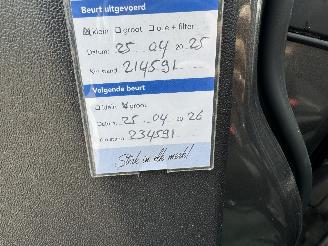 Beurt uitgevoerd
☒ klein ☐ groot ☐ olie + filter
Datum: 25 04 20 25
Km stand: 214591
Volgende beurt
☐ klein ☒ groot
Datum: 25 04 20 26
Km stand: 234591
Sterk in elk merk!